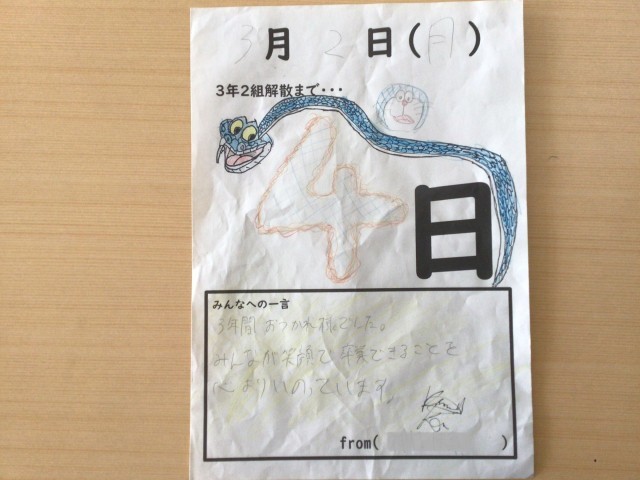 3月2日(月)
3年2組解散まで・・・
4日
みんなへの一言
3年間おつかれ様でした。
みんなが笑顔で卒業できることを
心よりいのっています。
from( )